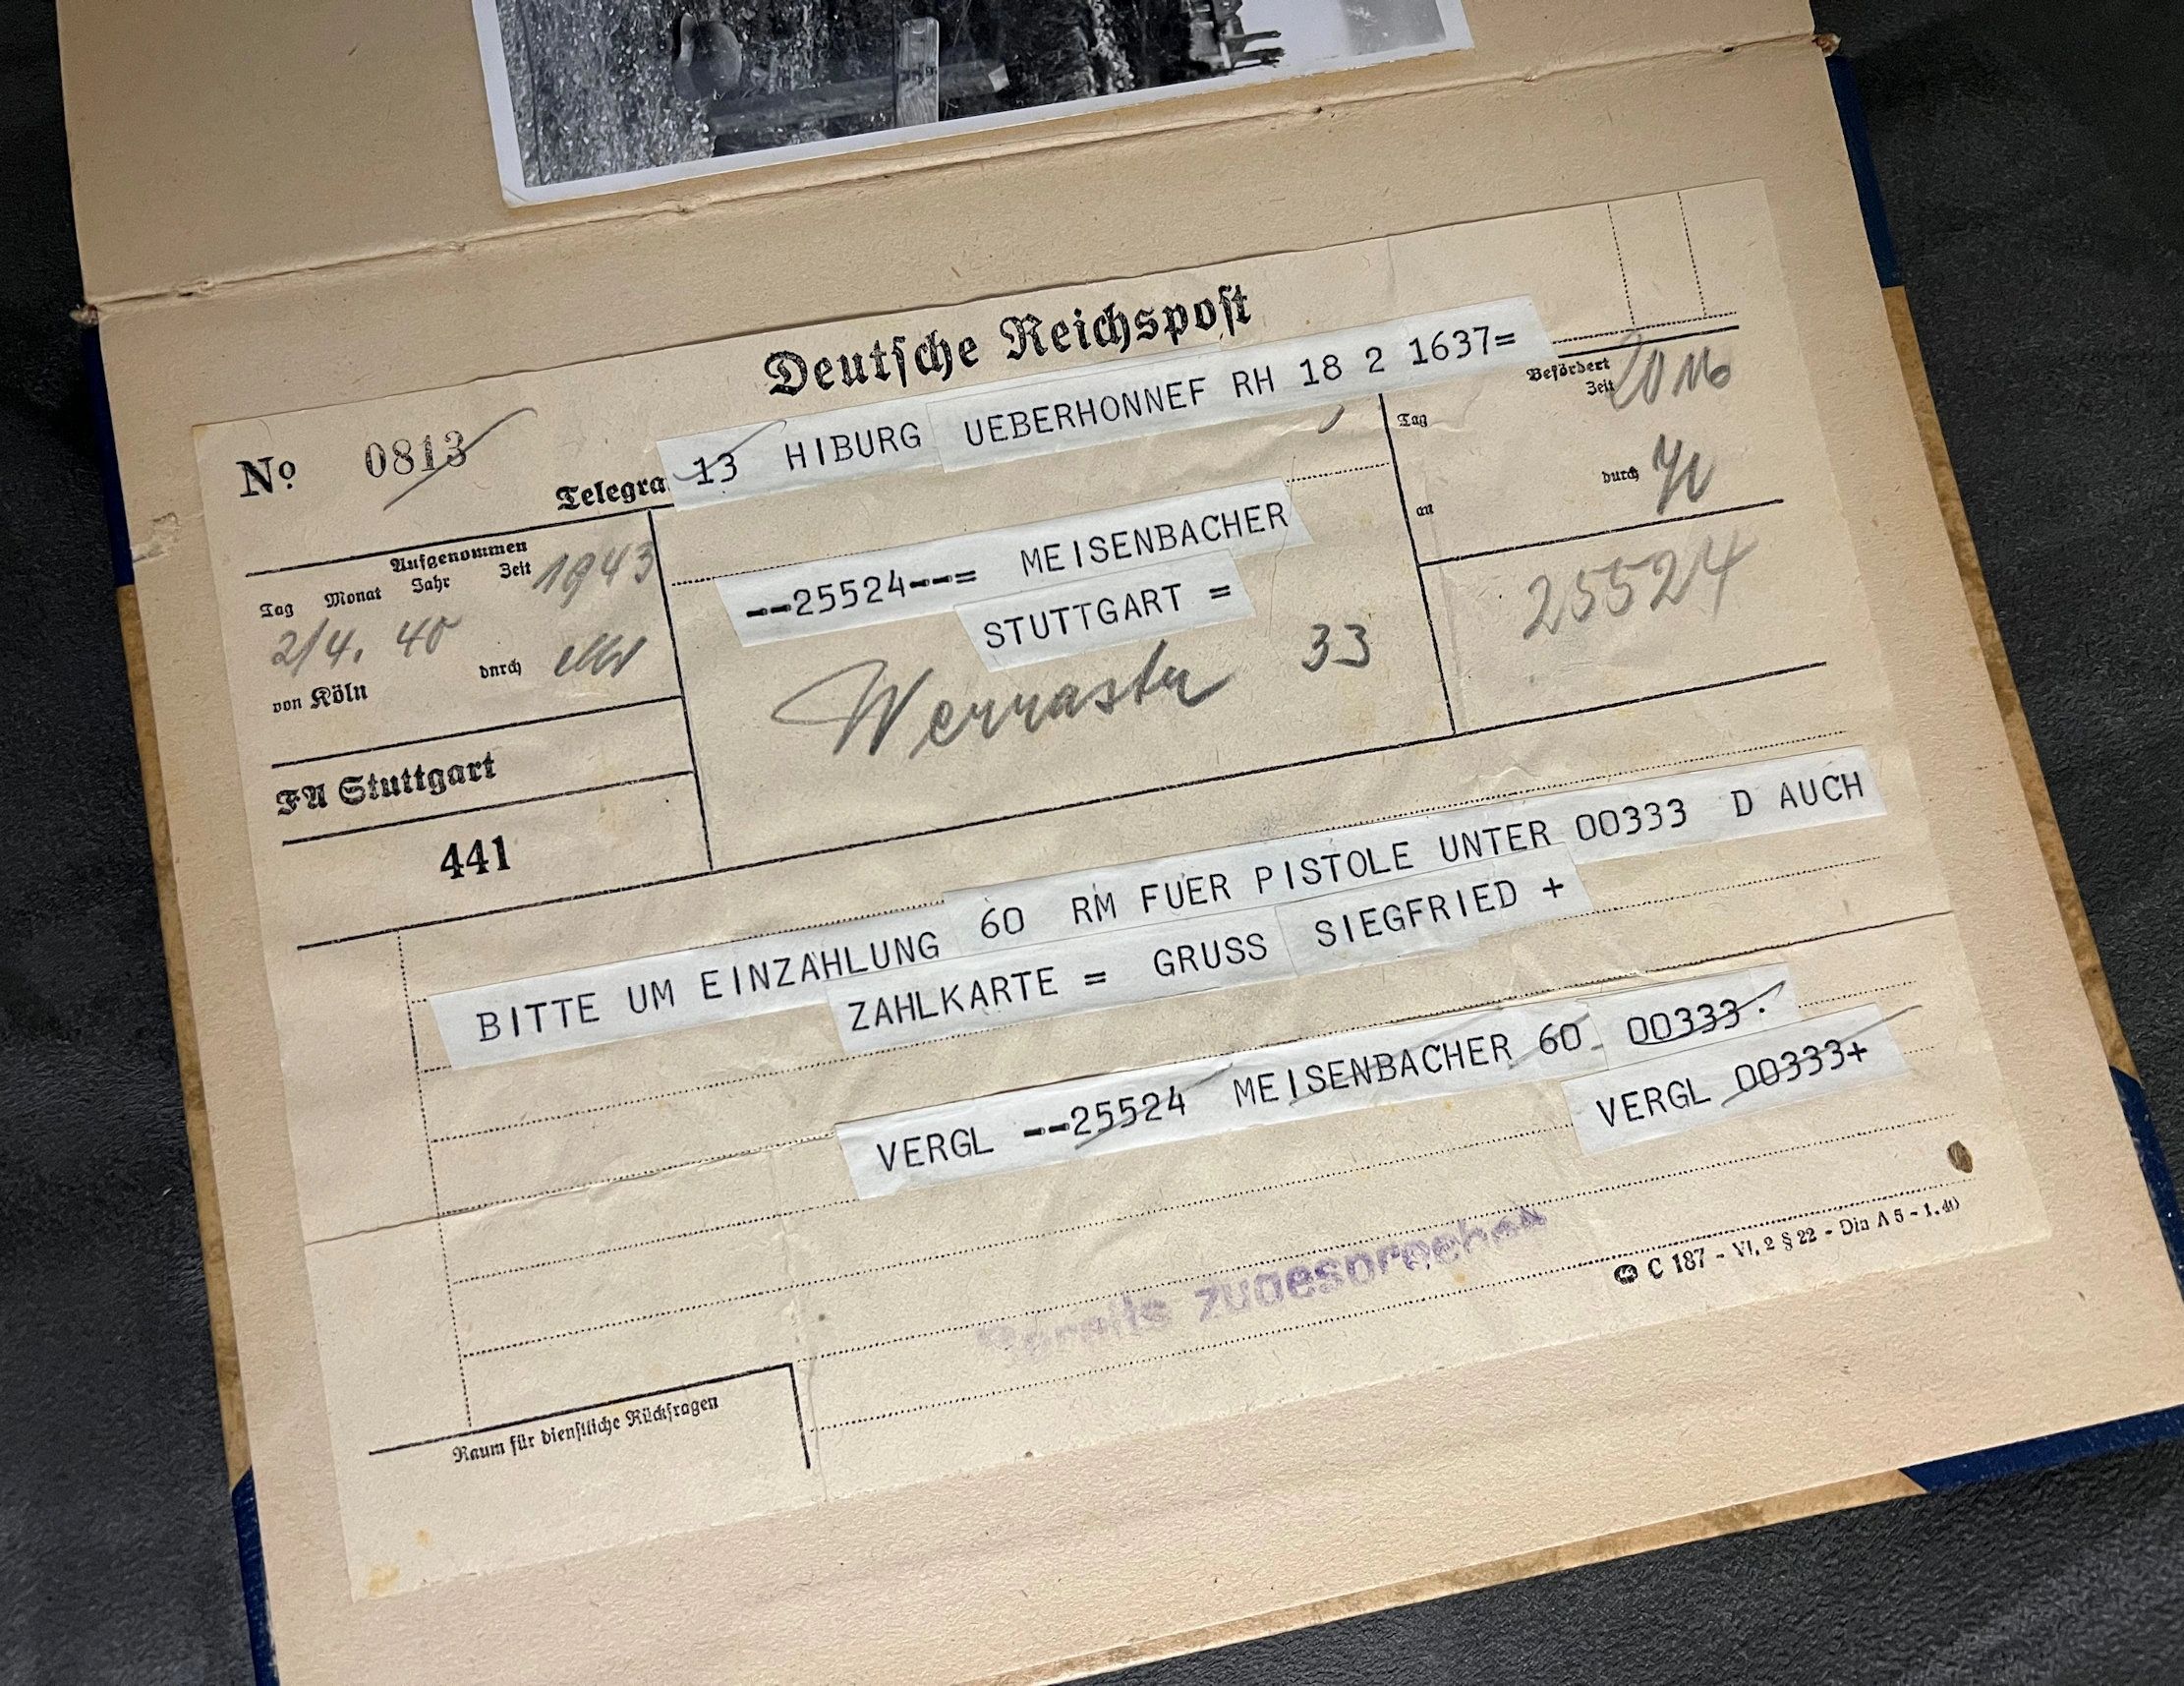 Deutsche Reichspost
No 0813
Telegra 13 HIBURG UEBERHONNEF RH 18 2 1637=
Aufgenommen
Tag Monat Jahr Zeit 1943
2/4. 40
von Köln durch
FA Stuttgart
441
--25524--= MEISENBACHER
STUTTGART =
Werrastr 33
Befördert
Zeit
Tag
an durch
25524
BITTE UM EINZAHLUNG 60 RM FUER PISTOLE UNTER 00333 D AUCH
ZAHLKARTE = GRUSS SIEGFRIED +
VERGL --25524 MEISENBACHER 60 00333.
VERGL 00333+
Bereits zugesprochen
C 187 - VI, 2 § 22 - Din A 5 - 1.40
Raum für dienstliche Rückfragen